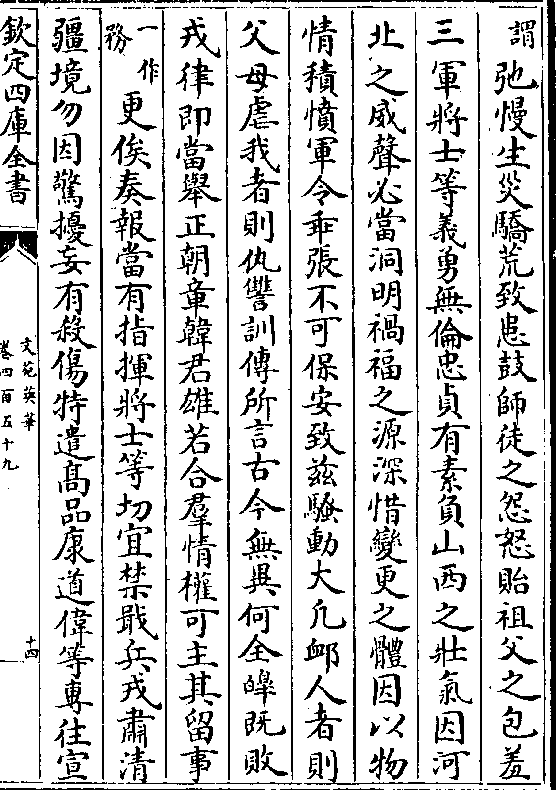 謂弛慢生災驕荒致患鼓師徒之怨怒貽祖父之包羞
三軍將士等義勇無倫忠貞有素負山西之壯氣因河
北之威聲必當洞明禍福之源深惜變更之體因以物
情積憤軍令乖張不可保安致兹騷動大凡䘏人者則
父母虐我者則仇讐訓傳所言古今無異何全皥既敗
戎律即當舉正朝章韓君雄若合羣情權可主其留事
一作務更俟奏報當有指揮將士等切宜禁戢兵戎肅清
疆境勿因驚擾妄有殺傷特遣高品康道偉等專往宣
欽定四庫全書
文苑英華
卷四百五十九
十四